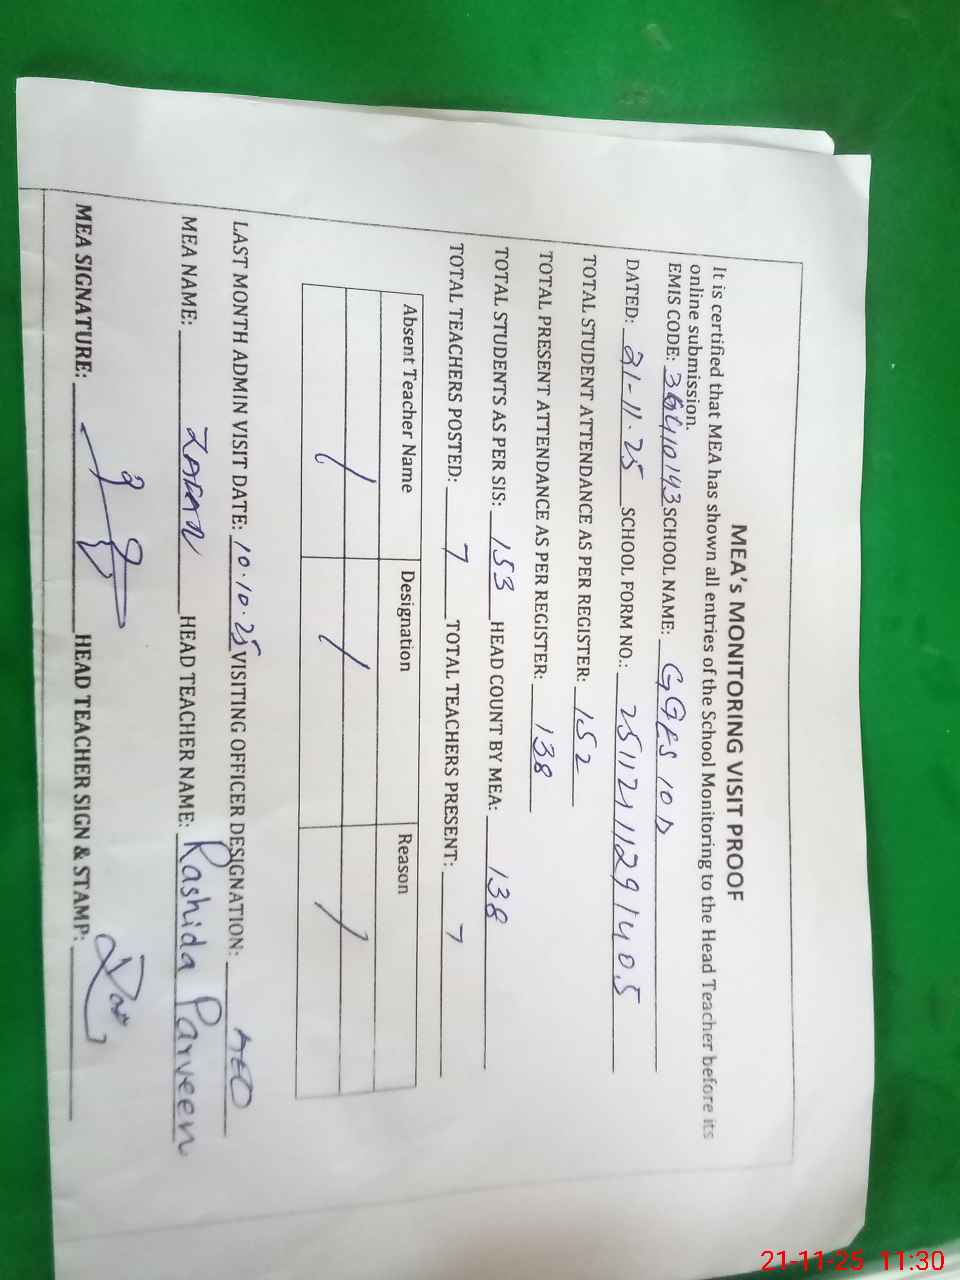 MEA's MONITORING VISIT PROOF
It is certified that MEA has shown all entries of the School Monitoring to the Head Teacher before its
online submission.
EMIS CODE: 36410143 SCHOOL NAME: GGES 10 D
DATED: 21-11-25 SCHOOL FORM NO.: 25112111291405
TOTAL STUDENT ATTENDANCE AS PER REGISTER: 152
TOTAL PRESENT ATTENDANCE AS PER REGISTER: 138
TOTAL STUDENTS AS PER SIS: 153 HEAD COUNT BY MEA: 138
TOTAL TEACHERS POSTED: 7 TOTAL TEACHERS PRESENT: 7
Absent Teacher Name Designation Reason
/ / /
LAST MONTH ADMIN VISIT DATE: 10.10.25 VISITING OFFICER DESIGNATION: AEO
MEA NAME: HEAD TEACHER NAME: Rashida Parveen
MEA SIGNATURE: HEAD TEACHER SIGN & STAMP:
21-11-25 11:30